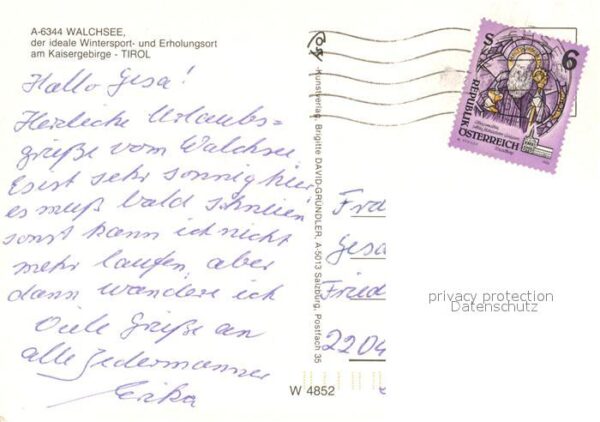 A-6344 WALCHSEE,
der ideale Wintersport- und Erholungsort
am Kaisergebirge - TIROL
Hallo Gesa!
Herzliche Urlaubs=
grüße vom Walchsee
Es ist sehr sonnig hier
es muß bald schneien
sonst kann ich nicht
mehr laufen, aber
dann wandere ich
Viele Grüße an
alle Zedermanner
Erika
Kunstverlag Brigitte DAVID-GRÜNDLER, A-5013 Salzburg, Postfach 35
W 4852
S 6
REPUBLIK
ÖSTERREICH
Gesa
Fried
2204
privacy protection
Datenschutz